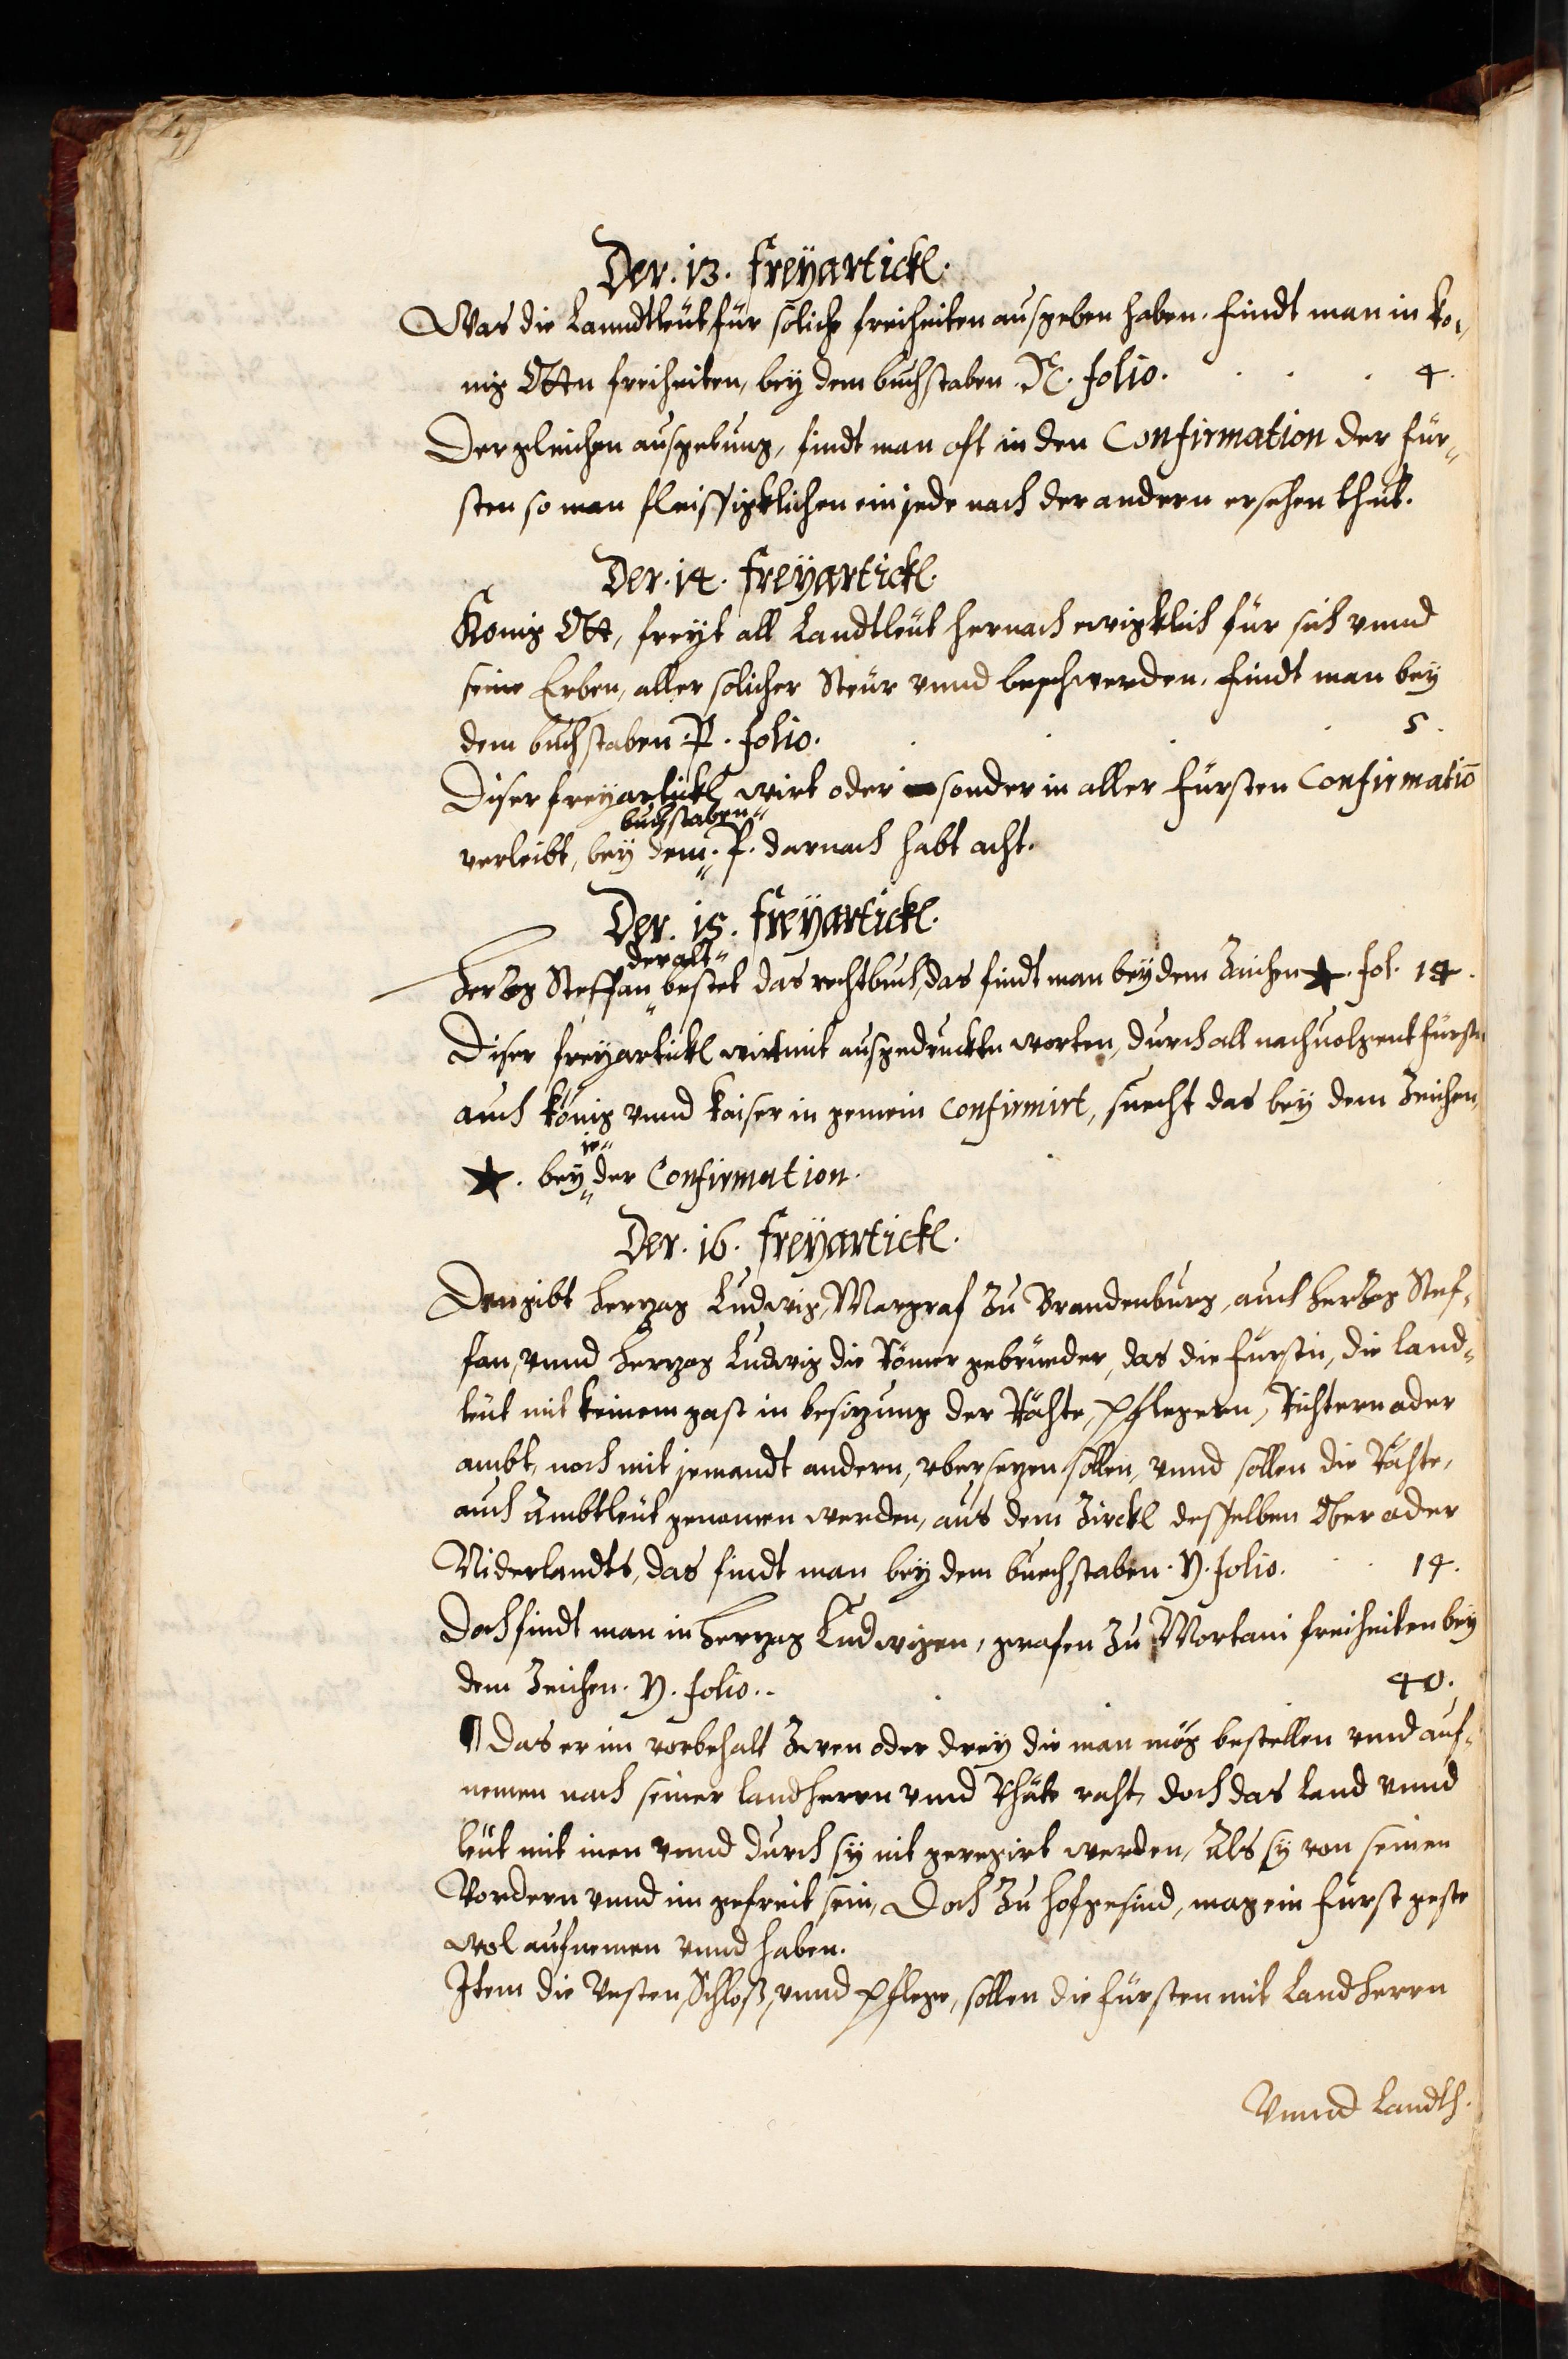 Der. 13. freyartickl.
Was die Lanndtleüt für soliche freiheiten ausgeben haben. findt man in ko„
nig Otten freiheiten, bey dem buchstaben. N. folio. . . . 4.
Dergleichen ausgebung, findt man oft in den Confirmation der für„
sten so man fleissigklichen ein jede nach der andern ersehen thut.
Der. 14. freyartickl.
Konig Ott, freyt all Landtleüt hernach ewigklich für sich vnnd
seine Erben, aller solicher Steür vnnd beschwerden. findt man bey
dem buchstaben. P. folio. . . . . 5.
Diser freyartickl wirt oder sonder in aller fürsten Confirmatiō
buchstaben„
verleibt, bey dem„. P. darnach habt acht.
Der. 15. freyartickl.
der alt„
Hertzog Steffan„ bestet das rechtbuch, das findt man bey dem Zaichen ★. fol. 14.
Diser freyartickl wirt mit ausgedruckten worten, durch all nachuolgent fürstn
auch könig vnnd kaiser in gemein confirmirt, suecht das bey dem Zeichen,
je„
★. bey„ der Confirmation.
Der. 16. freyartickl.
Den gibt herzag Ludwig, Margraf zu Brandenburg, auch hertzog Stef„
fan, vnnd herzag Ludwig die Römer gebrüeder, das die fürstn, die land„
leüt mit keinem gast in besizung der Rähte, pflegern, Richtern oder
ambt, noch mit jemandt andern, vbersezen sollen, vnnd sollen die Rähte,
auch Ambtleüt genomen werden, aus dem Zirckl desselben Ober oder
Niderlandts, das findt man bey dem buechstaben. N. folio. . . 14.
Doch findt man in herzag Ludwigen, grafen zu Mortani freiheiten bey
dem Zeichen. N. folio. . 40.
¶ das er im vorbehalt zwen oder drey die man mög bestellen vnnd auf„
nemen nach seiner landherrn vnnd Rhäte raht, doch das Land vnnd
leüt mit inen vnnd durch sy nit geregirt werden, Als sy von seinen
Vordern vnnd im gefreit sein, Doch zu hofgesind, mag ein fürst geste
wol aufnemen vnnd haben.
Item die Vesten, Schloß, vnnd pflege, sollen die fürsten mit Landherrn
Vnnd Landth.